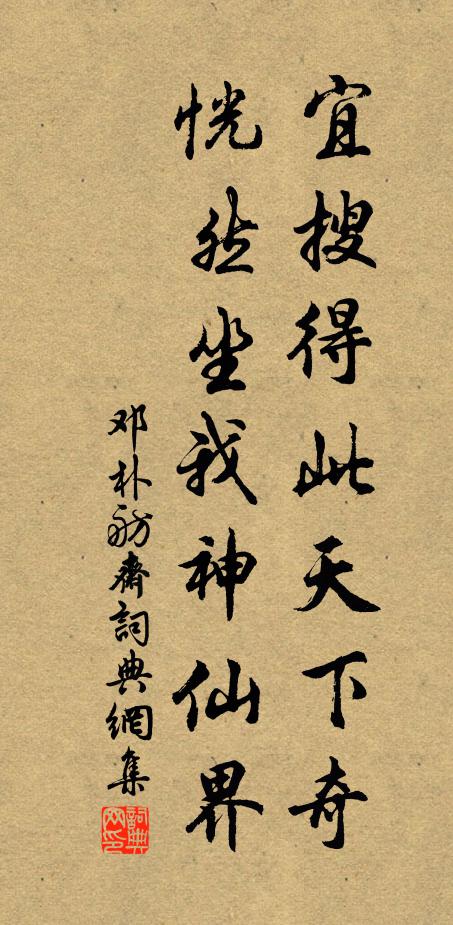 宜搜得此天下奇
恍然坐我神仙界
邓朴舫齋詞典網集
詞典网印